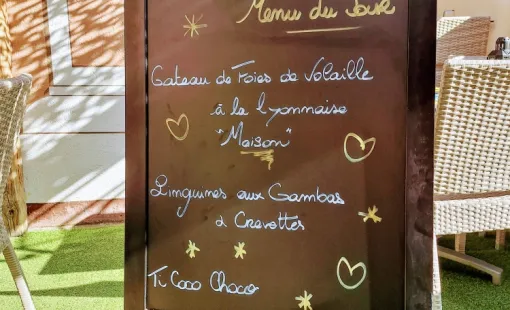 Menu du Jour
Gateau de Foies de Volaille
à la Lyonnaise
"Maison"
Linguines aux Gambas
& Crevettes
Ti Coco Choco